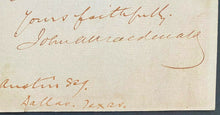 Yours faithfully,
John A Macdonald
Austin Esq.
Dallas, Texas.